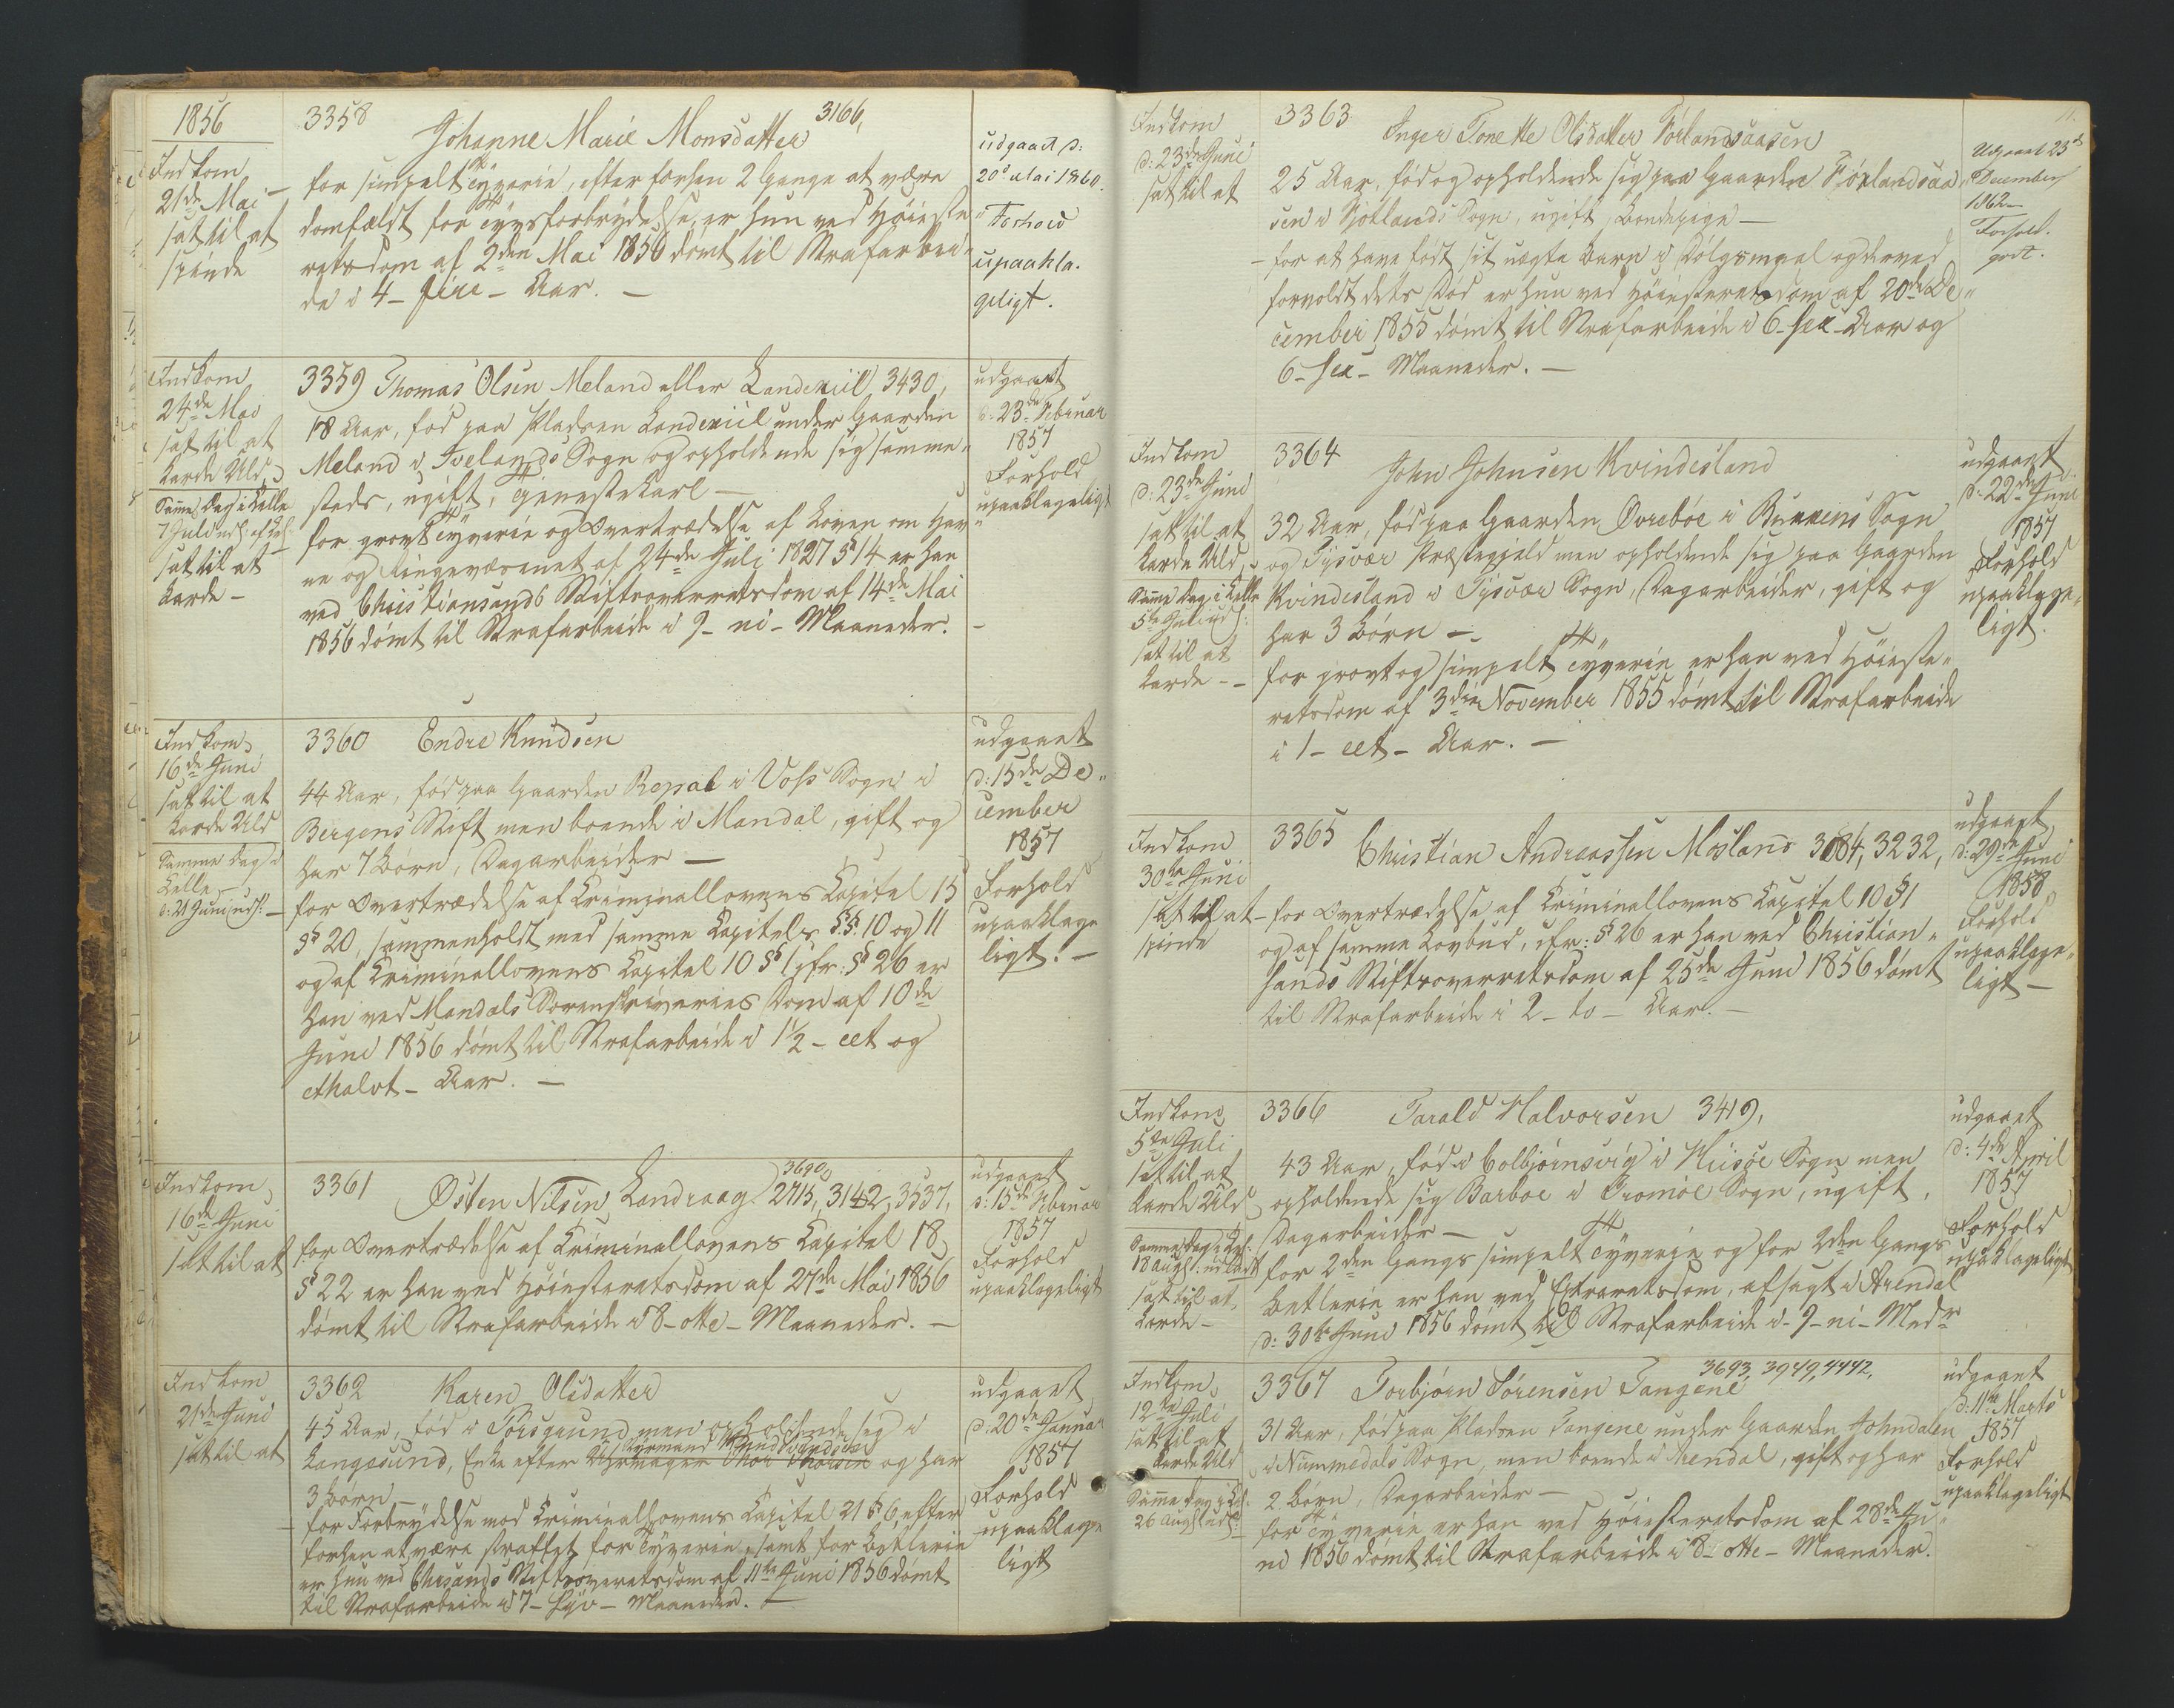 1856
Indkom
21de Mai
sat til at
spinde
3358
3166,
Johanne Marie Monsdatter
for simpelt Tyverie, efter forhen 2 Gange at være
domfældt for Tyvsforbrydelse, er hun ved Høieste
retsdom af 2den Mai 1856 dømt til Strafarbei-
de i 4 - fire - Aar. -
udgaaet d:
20d Mai 1860.
Forhold
upaakla.
geligt.
Indkom
24de Mai
sat til at
karde Uld
Samme Dag i Celle
7 Juli uds. af Cel.
sat til at
karde -
3359 Thomas Olsen Meland eller Landeviil 3430,
18 Aar, fød paa Pladsen Landeviil under Gaarden
Meland i Ivelands Sogn og opholdende sig samme-
steds, ugift, Tjenestekarl -
for grovt Tyverie og Overtrædelse af Loven om Hav
ne og Ringevæsenet af 24de Juli 1827 § 14 er han
ved Christiansands Stiftsoverretsdom af 14de Mai
1856 dømt til Strafarbeide i 9 - ni - Maaneder. -
udgaaet
d: 23de Februar
1857
Forhold
upaaklageligt
Indkom
16de Juni
sat til at
karde Uld
Samme Dag i
Celle
d: 21 Juni uds: -
3360 Endre Knudsen
44 Aar, fød paa Gaarden Repal i Voss Sogn i
Bergens Stift men boende i Mandal, gift og
har 7 Børn, Dagarbeider -
for Overtrædelse af Criminallovens Capitel 15
§ 20, sammenholdt med samme Capitels §§. 10 og 11
og af Criminallovens Capitel 10 § 1 jfr: § 26 er
han ved Mandals Sorenskriveries Dom af 10de
Juni 1856 dømt til Strafarbeide i 1½ - eet og
ethalvt - Aar. -
udgaaet
d: 15de De-
cember
1857
Forhold
upaaklage
ligt. -
Indkom
16de Juni
sat til at
3361
3690,
Østen Nilsen Landraag 2715, 3142, 3537,
for Overtrædelse af Criminallovens Capitel 18
§ 22 er han ved Høiesteretsdom af 27de Mai 1856
dømt til Strafarbeide i 8 - otte - Maaneder. -
udgaaet
d: 15de Februar
1857
Forhold
upaaklageligt
Indkom
21de Juni
sat til at
3362 Karen Olsdatter
45 Aar, fød i Porsgrund men opholdende sig i
Langesund, Enke efter Uhrmager Thor Thorsen og har
3 Børn -
for Forbrydelse mod Criminallovens Capitel 21 § 6, efter
forhen at være straffet for Tyverie, samt for Betlerie
er hun ved Chrsands Stiftsoverretsdom af 11te Juni 1856 dømt
til Strafarbeide i 7 - syv - Maaneder. -
udgaaet
d: 20de Januar
1857
Forhold
upaaklage
ligt
11.
Indkom
d: 23de Juni
sat til at
3363
Inger Tonette Olsdatter Førlandsaasen
25 Aar, fød og opholdende sig paa Gaarden Førlandsaa
sen i Fjotlands Sogn, ugift, Bondepige -
- for at have født sit uægte Barn i Dølgsmaal og derved
forvoldt dets Død er hun ved Høiesteretsdom af 20de De-
cember 1855 dømt til Strafarbeide i 6 - sex - Aar og
6 - sex - Maaneder. -
Udgaaet 23d
December
1862
Forhold.
godt.
Indkom
d: 23de Juni
sat til at
karde Uld,
Samme Dag i Celle
5te Juli uds:
sat til at
karde -
3364
John Johnsen Kvindesland
32 Aar, fød paa Gaarden Øvrebøe i Sogn
og Tysvær Præstegjeld men opholdende sig paa Gaarden
Kvindesland i Tysvær Sogn, Dagarbeider, gift og
har 3 Børn -
for grovt og simpelt Tyverie er han ved Høieste-
retsdom af 3die November 1855 dømt til Strafarbeide
i 1 - eet - Aar. -
udgaaet
d: 22de Juni
1857
Forhold
upaaklage-
ligt.
Indkom
30te Juni
sat til at
spinde
3365
Christian Andreassen Mosland 3084, 3232,
- for Overtrædelse af Criminallovens Capitel 10 § 1
og af samme Lovbud, cfr: § 26 er han ved Christian-
sands Stiftsoverretsdom af 25de Juni 1856 dømt
til Strafarbeide i 2 - to - Aar. -
udgaaet
d: 29de Juni
1858
Forhold
upaaklage-
ligt -
Indkom
5te Juli
sat til at
karde Uld
Samme Dag i Cel:
18 Aug: udladt
sat til at
karde -
3366 Tarald Halvorsen 3419,
43 Aar, fød i Colbjørnsvig i Hiisøe Sogn men
opholdende sig Barboe i Tromøe Sogn, ugift,
Dagarbeider -
for 2den Gangs simpelt Tyverie og for 2den Gangs
Betlerie er han ved Extraretsdom, afsagt i Arendal
d: 30te Juni 1856 dømt til Strafarbeide i - 9 - ni - Mndr
udgaaet
d: 4de April
1857
Forhold
upaaklageligt
Indkom
12te Juli
sat til at
karde Uld
Samme Dag i Cel:
26 Aug: uds:
3693, 3949, 4442,
3367 Torbjørn Sørensen Tangene
31 Aar, fød paa Pladsen Tangene under Gaarden Johndalen
i Nummedals Sogn, men boende i Arendal, gift og har
2 Børn, Dagarbeider -
for Tyverie er han ved Høiesteretsdom af 28de Ju-
ni 1856 dømt til Strafarbeide i 8 - otte - Maaneder.
udgaaet
d: 11te Marts
1857
Forhold
upaaklageligt